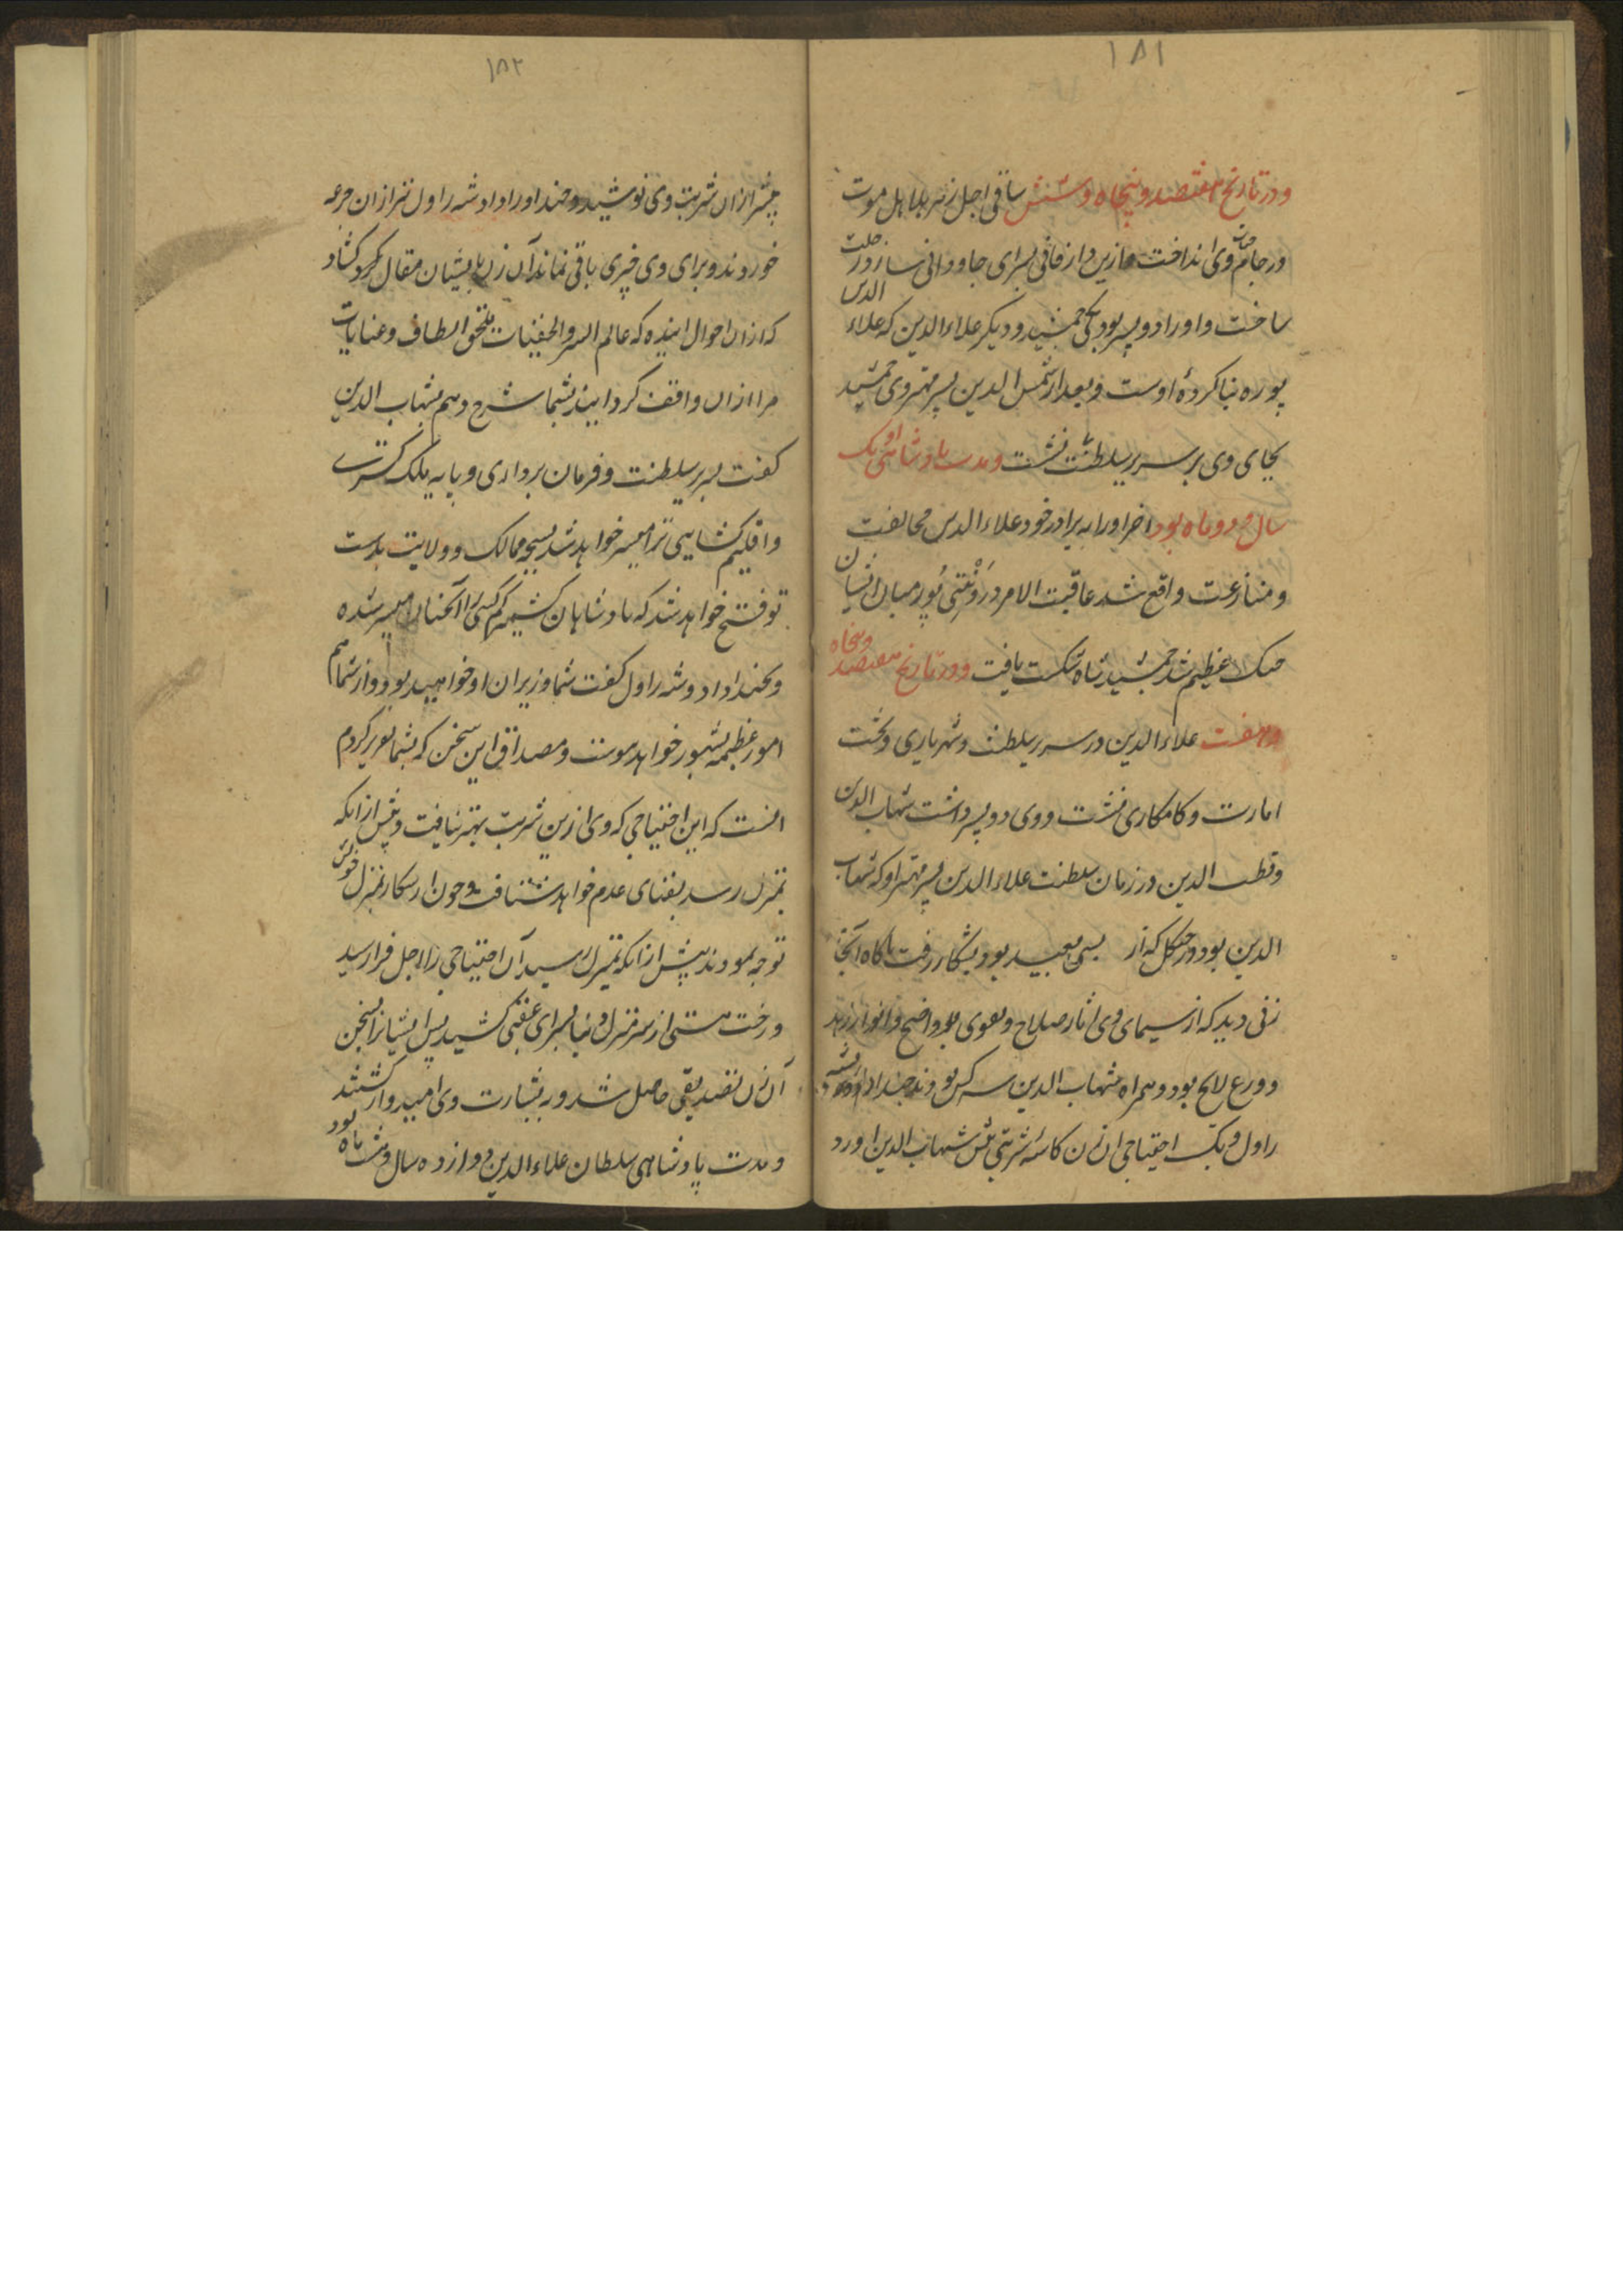 ۱۸۱
ودر تاریخ هفتصد و پنجاه و شش ساقی اجل زهر هلاهل موت
در جام حیات وی انداخت وازین دار فانی بسرای جاودانی ساز رحلت
ساخت واو را دو پسر بود یکی جمشید و دیگر علاءالدین که علاء الدین
پوره بنا کردهٔ اوست و بعد از شمس الدین پسر مهتر وی جمشید
بجای وی بر سریر سلطنت نشست ومدت بادشاهی او یک
سال و دو ماه بود اخر اورا به برادر خود علاءالدین مخالفت
و منازعت واقع شد عاقبت الامر در ونتی پور میان ایشان
جنک عظیم شد جمشید شاه شکست یافت ودر تاریخ هفتصد وپنجاه
وهفت علاءالدین در سریر سلطنت وشهریاری وتخت
امارت وکامکاری نشست و وی دو پسر داشت شهاب الدین
وقطب الدین در زمان سلطنت علاءالدین پسر مهتر او که شهاب
الدین بود در جنکل که از بسی بعید بود بشکار رفت ناکاه آنجا
زنی دید که از سیمای وی اثار صلاح وتقوی واضح وانوار زهد
و ورع لایح بود و همراه شهاب الدین سه کس بودند جندا ادا دوشه
راول و یک اختیاجی ان زن کاسه شربتی پیش شهاب الدین اورد
۱۸۲
بیشتر ازان شربت وی نوشید و جندا ورا داد و شه راول نیز ازان جرعه
خوردند و برای وی چیزی باقی نماند آن زن با ایشان مقال کرد کشاد
که ازان احوال اینده که عالم السر والخفیات بمحض الطاف وعنایات
مرا ازان واقف کردانید بشما شرح دهم شهاب الدین
کفت سریر سلطنت وفرمان برداری و پایه ملک کسری
واقلیم کشایی ترا میسر خواهد شد بسی ممالک و ولایت بدست
تو فتح خواهد شد که بادشاهان کشمیر کم کسی را آنچنان میسر شده
وبجندا دا و دوشه راول کفت شما وزیران او خواهید بود واز شما هم
امور عظیمه بظهور خواهد پیوست ومصداق این سخن که بشما تقریر کردم
انست که این اختیاجی که وی ازین شربت بهره نیافت پیش ازانکه
بمنزل رسد بفنای عدم خواهد شتافت و چون از شکار بمنزل خویش
توجه نمودند پیش ازانکه بمنزل رسید آن اختیاجی را اجل فرا رسید
ورخت هستی از سر منزل دنیا بسرای عقبی کشید پس ایشانرا بسخن
آن زن تصدیقی حاصل شد وبه بشارت وی امیدوار کشتند
ومدت پادشاهی سلطان علاءالدین دوازده سال وهشت ماه بود